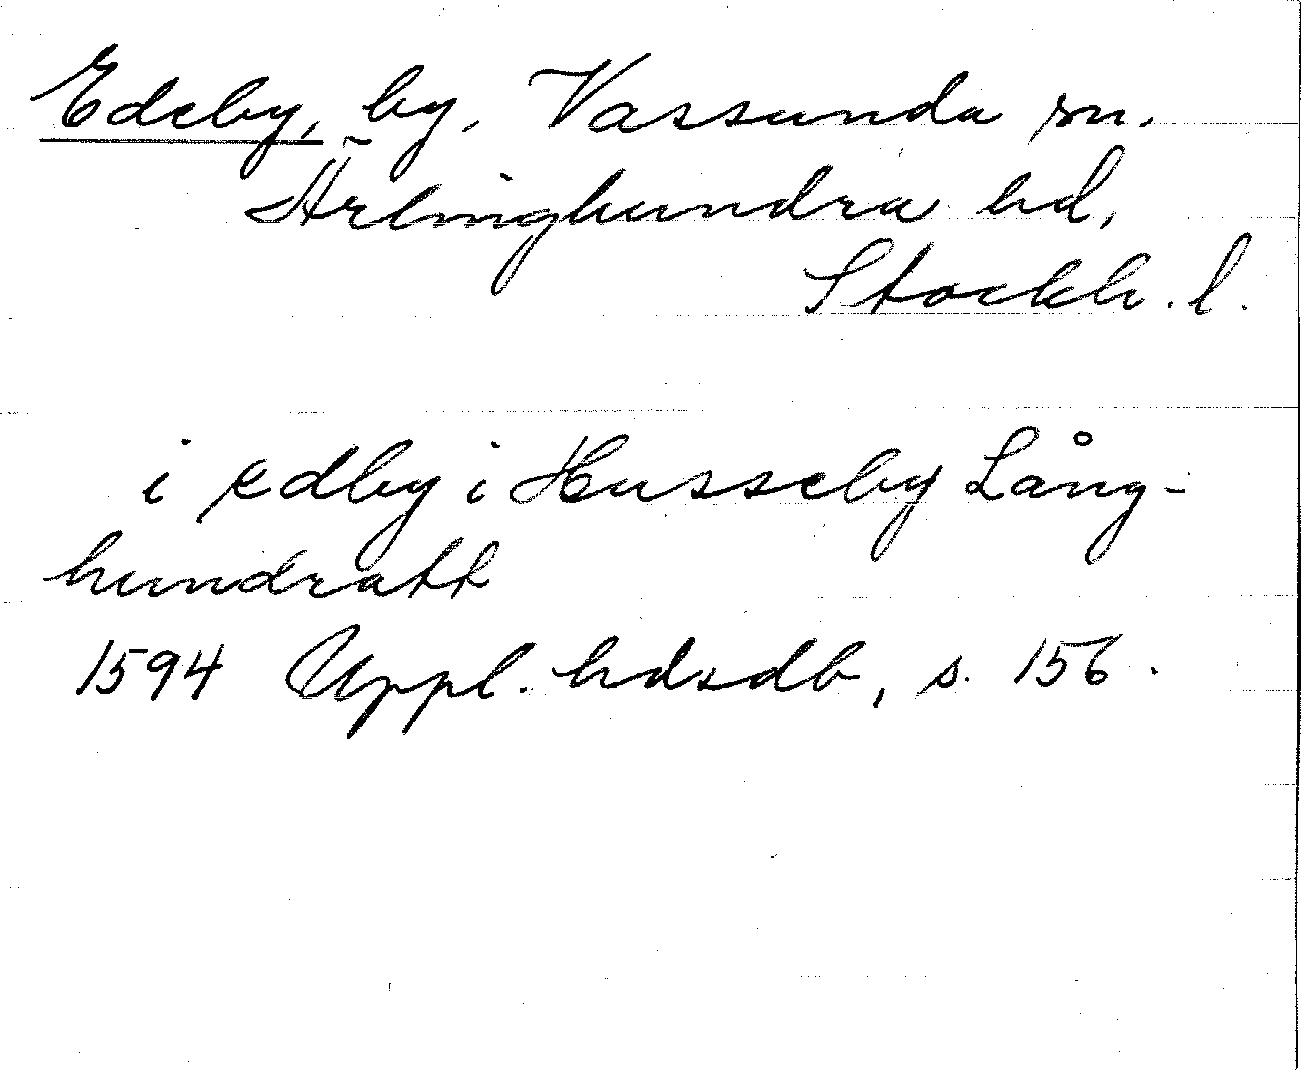 Edeby, by, Vassunda sn.
Ärlinghundra hd,
Stockh. l.
i edby i Husseby Lång-
hundratt
1594 Uppl. hdsdb, s. 156.